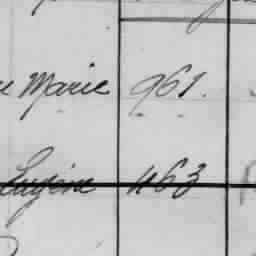 Marie 961.
Eugène 463